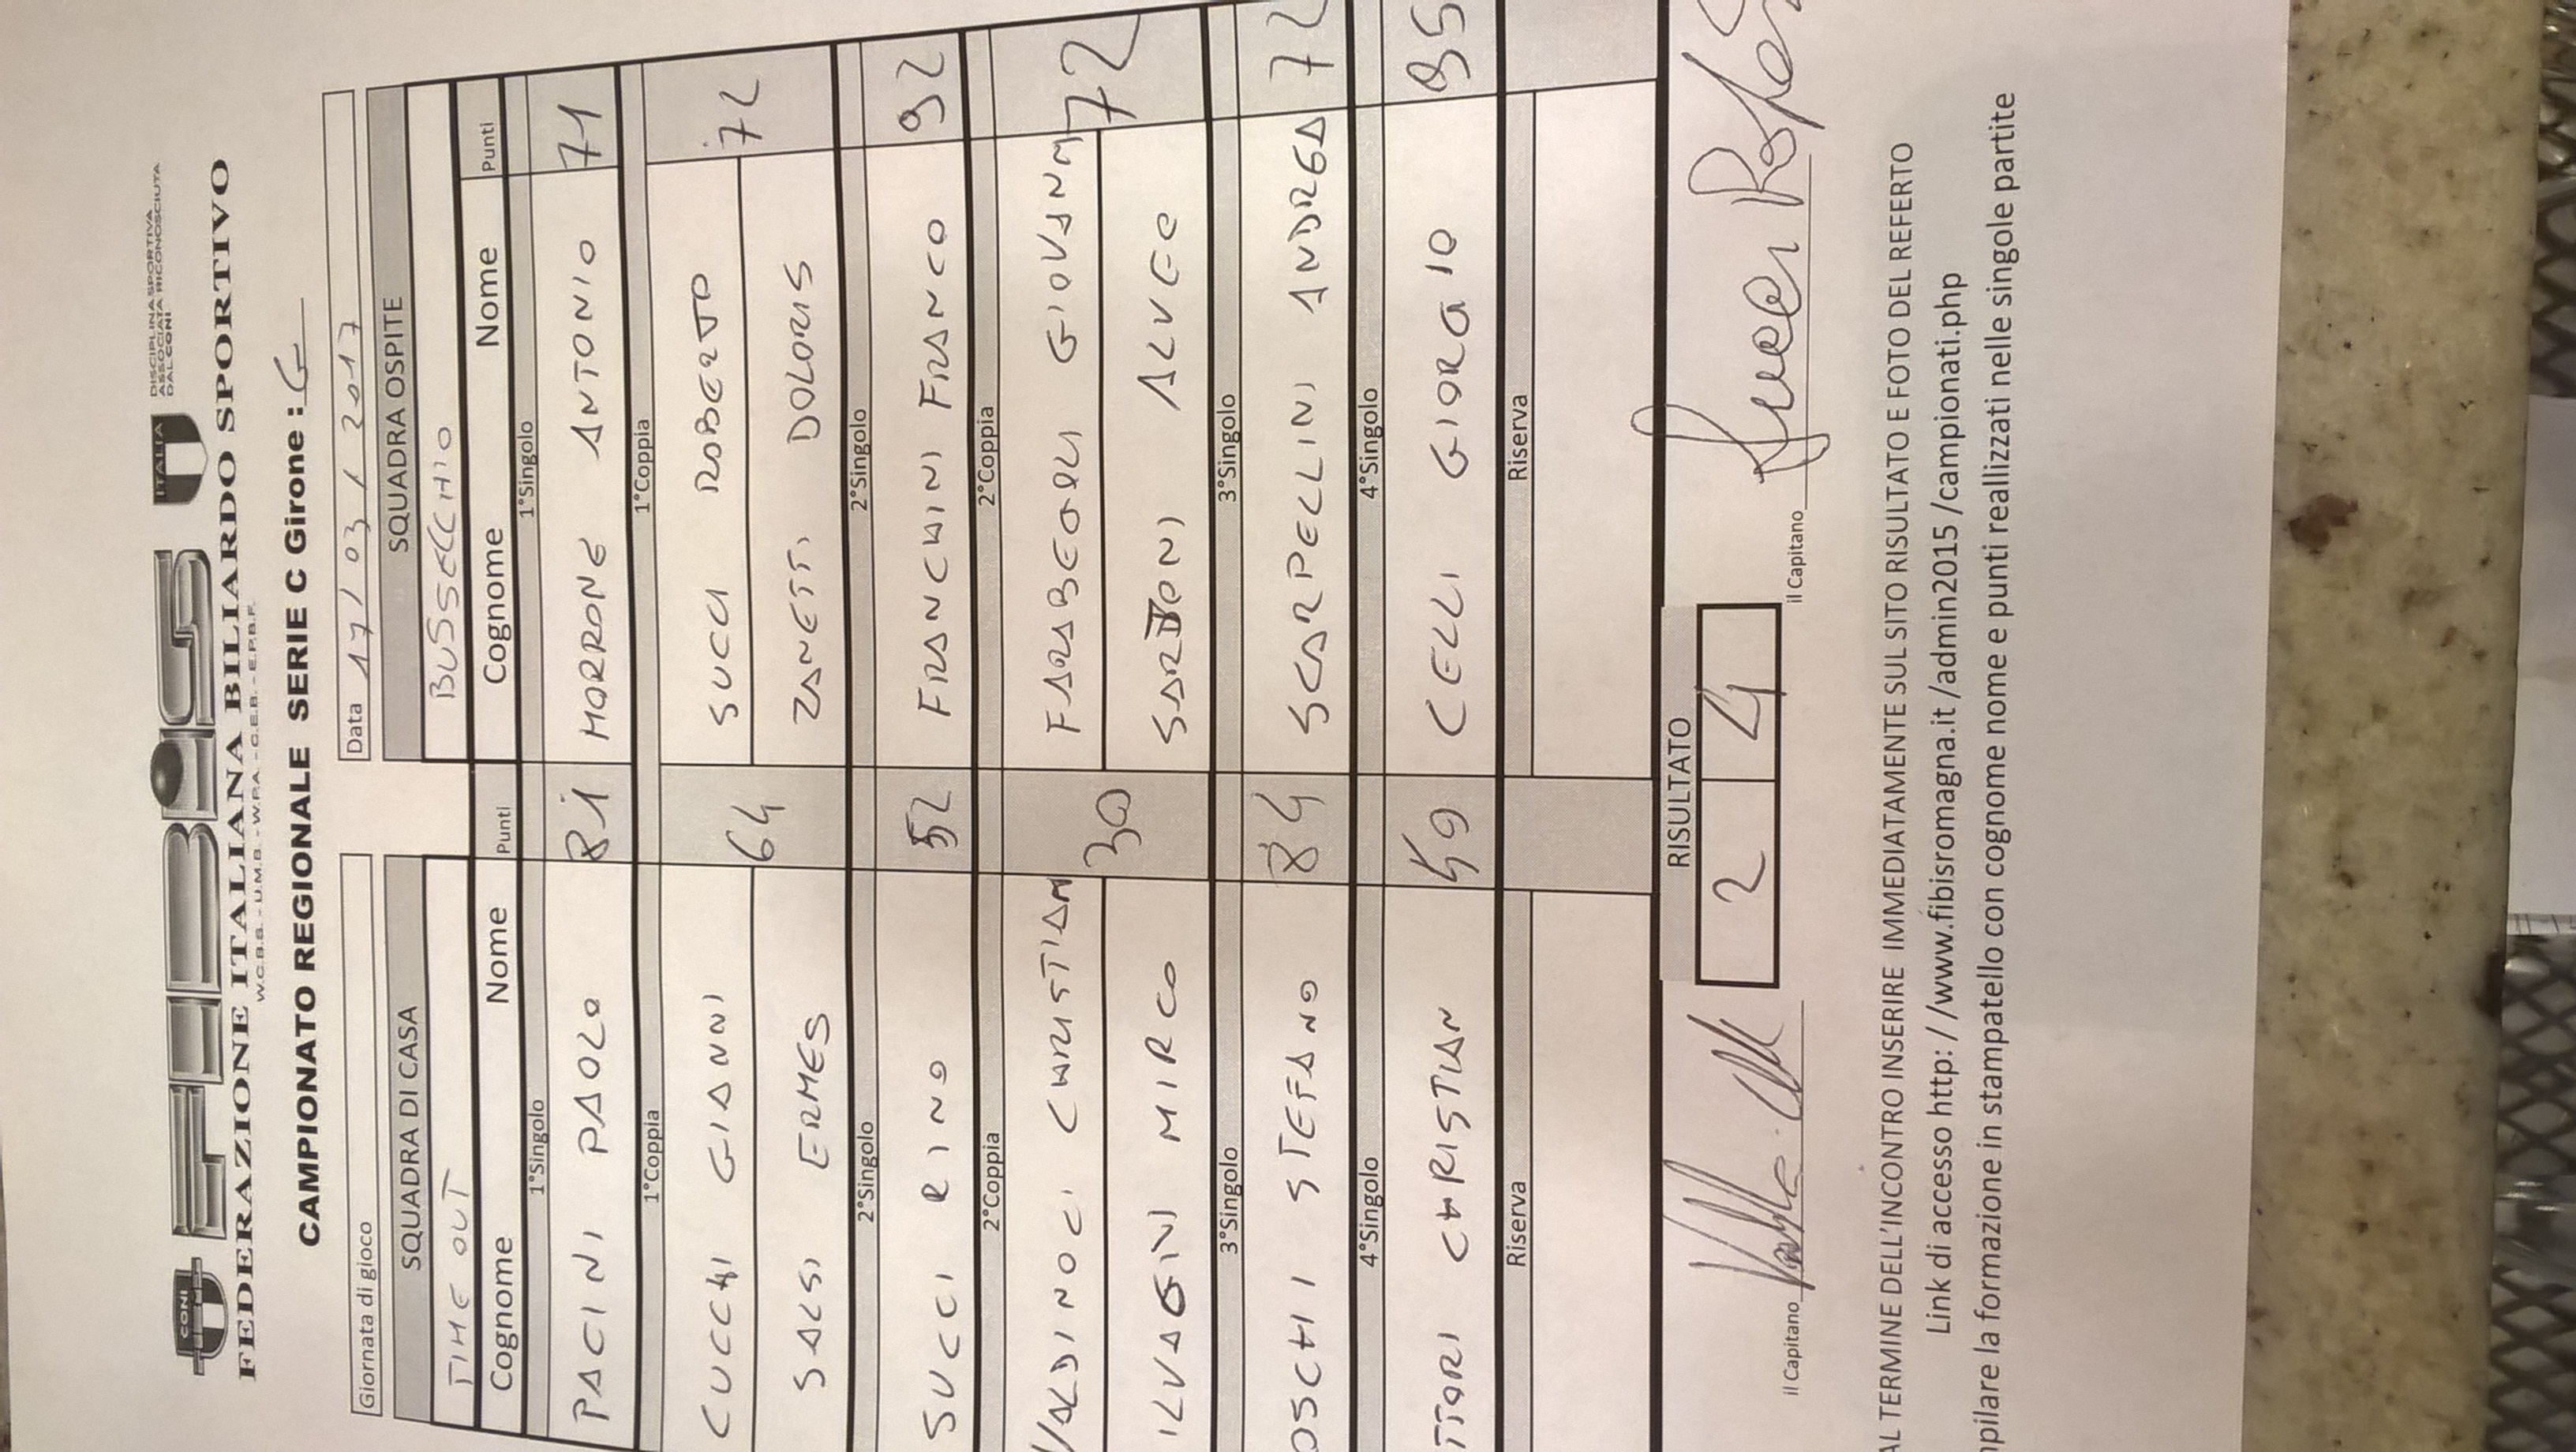 CONI FIBIS ITALIA DISCIPLINA SPORTIVA
ASSOCIATA RICONOSCIUTA
DAL CONI
FEDERAZIONE ITALIANA BILIARDO SPORTIVO
W.C.B.S. - U.M.B. - W.P.A. - C.E.B. - E.P.B.F.
CAMPIONATO REGIONALE SERIE C Girone : G
Giornata di gioco Data 17/03/2017
SQUADRA DI CASA SQUADRA OSPITE
TIME OUT BUSSECCHIO
Cognome Nome Punti Cognome Nome Punti
1°Singolo 1°Singolo
PACINI PAOLO 81 MORRONE ANTONIO 71
1°Coppia 1°Coppia
CUCCHI GIANNI 64 SUCCI ROBERTO 72
SALSI ERMES ZANETTI DOLORIS
2°Singolo 2°Singolo
SUCCI RINO 52 FRANCHINI FRANCO 92
2°Coppia 2°Coppia
VALDINOCI CHRISTIAN 30 FARABEGOLI GIOVANNI 72
ILVAGNI MIRCO SARTONI ALVEO
3°Singolo 3°Singolo
OSCHI STEFANO 84 SCARPELLINI ANDREA 72
4°Singolo 4°Singolo
TTORI CHRISTIAN 59 CELLI GIORGIO 95
Riserva Riserva
RISULTATO
2 4
il Capitano il Capitano
AL TERMINE DELL'INCONTRO INSERIRE IMMEDIATAMENTE SUL SITO RISULTATO E FOTO DEL REFERTO
Link di accesso http: / /www.fibisromagna.it /admin2015 /campionati.php
mpilare la formazione in stampatello con cognome nome e punti reallizzati nelle singole partite